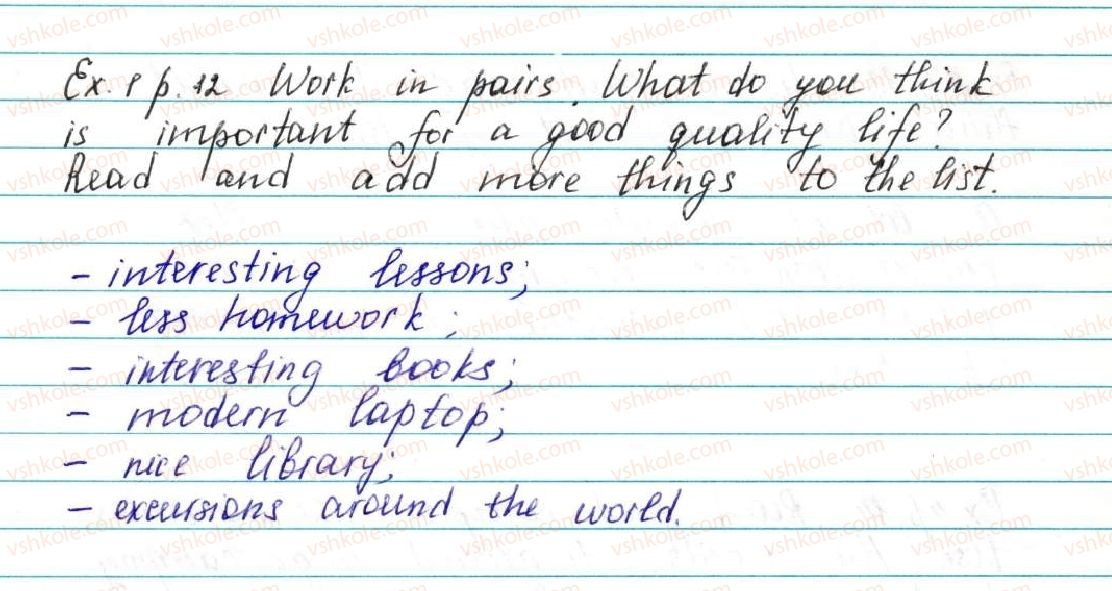 Ex. 1 p. 12 Work in pairs. What do you think
is important for a good quality life?
Read and add more things to the list.
- interesting lessons;
- less homework;
- interesting books;
- modern laptop;
- nice library;
- excursions around the world.